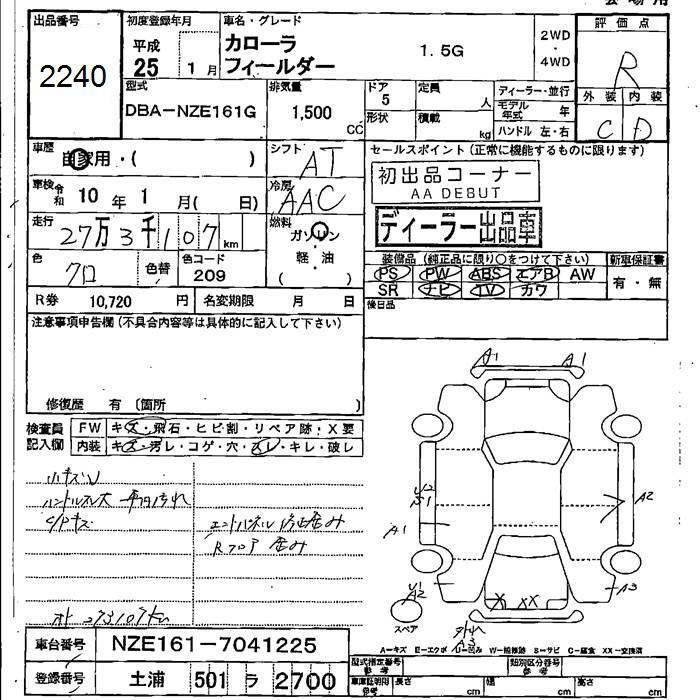 出品番号
2240
初度登録年月
平成
25 1月
車名・グレード
カローラ
フィールダー
1.5G
2WD
・
4WD
評価点
R
外装 内装
C D
型式
DBA-NZE161G
排気量
1,500
CC
ドア
5
形状
定員
人
積載
kg
ディーラー・並行
モデル年式 年
ハンドル 左・右
車歴
自家用・( )
シフト
AT
セールスポイント(正常に機能するものに限ります)
初出品コーナー
AA DEBUT
ディーラー出品車
車検 令和 10年1月( 日)
冷房
AAC
走行
27万3千107km
燃料
ガソリン
軽・油
( )
色
クロ
色替
色コード
209
装備品(純正品に限り○をつけて下さい)
PS PW ABS エアB AW
SR ナビ TV カワ
新車保証書
有・無
後日品
R券 10,720 円 名変期限 月 日
注意事項申告欄(不具合内容等は具体的に記入して下さい)
修復歴 有(箇所 )
検査員
記入欄
FW キズ・飛石・ヒビ割・リペア跡:X要
内装 キズ・汚レ・コゲ・穴・スレ・キレ・破レ
小キズU
ハンドルスレ大
C/Pキズ
エンドパネル 修正歪み
Rフロア 歪み
273107km
A1 A1
A1
A2
A3
スペア
XX
A-キズ E-エクボ U-凹み W-補修跡 S-サビ C-腐食 XX-交換済
車台番号 NZE161-7041225
登録番号 土浦 501 ラ 2700
型式指定番号 参考
類別区分番号 参考
車庫証明用 参考
長さ cm
幅 cm
高さ cm